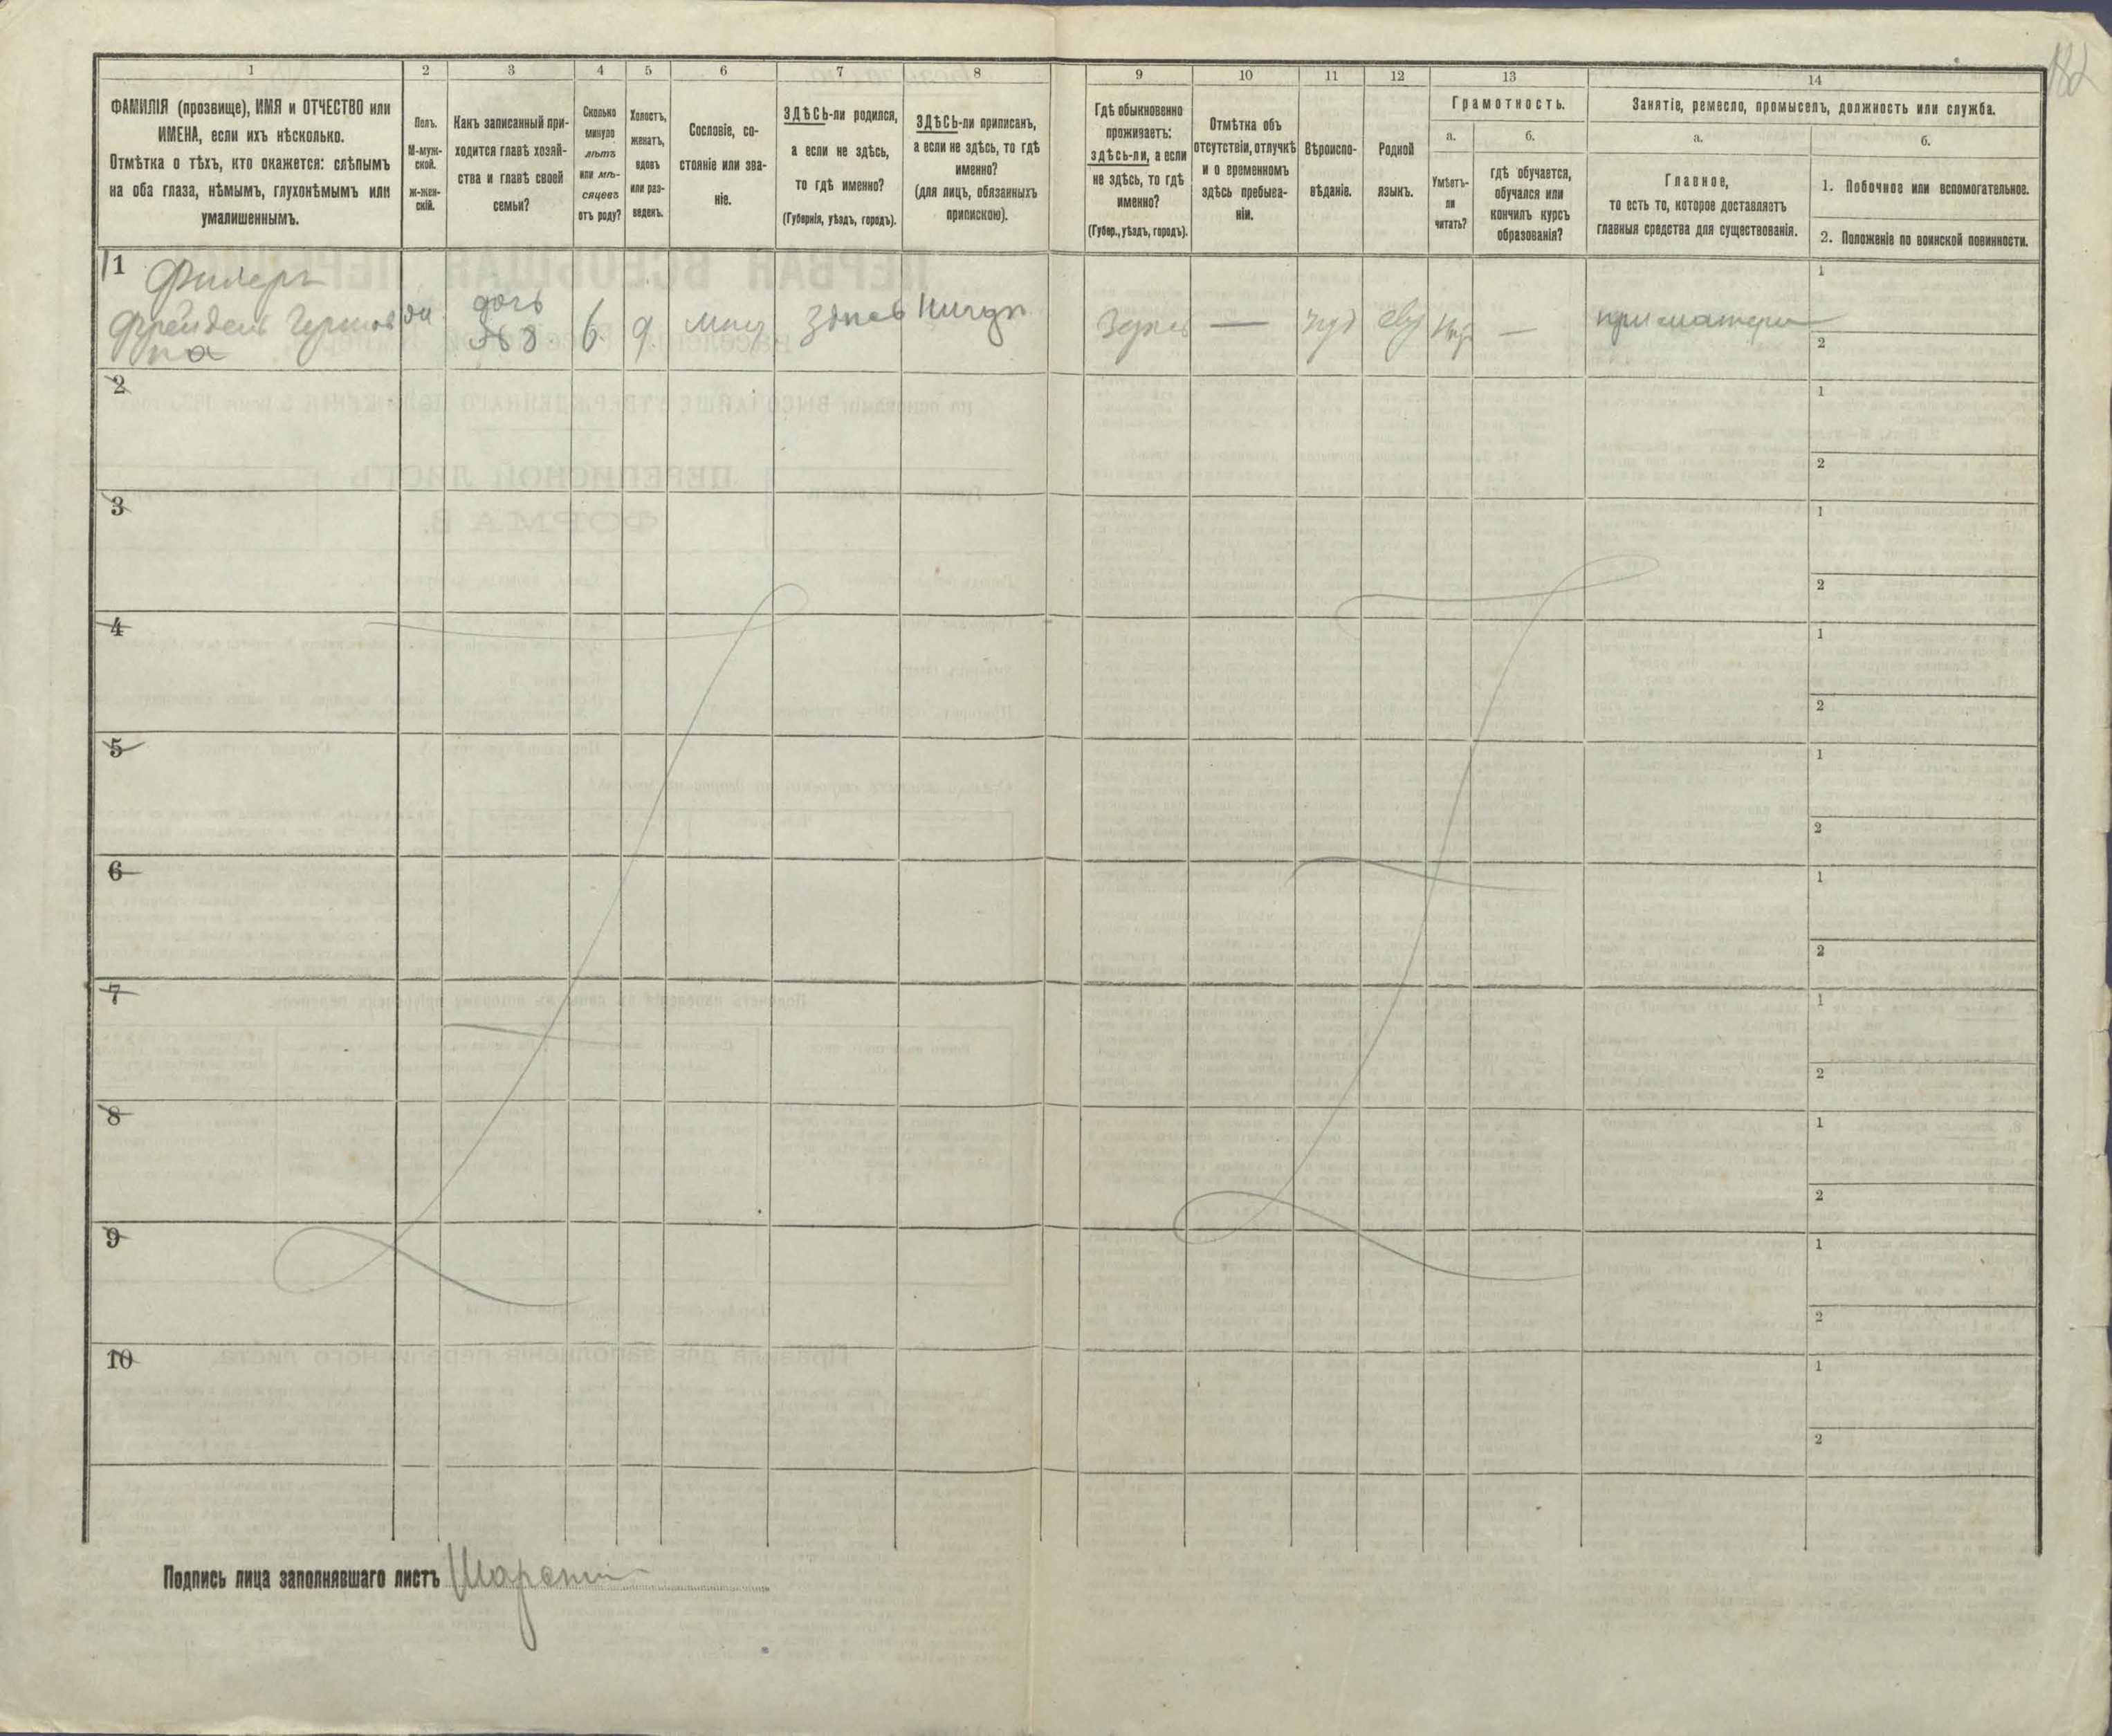 182
1
2
3
4
5
6
7
8
9
10
11
12
13
14
ФАМИЛІЯ (прозвище), ИМЯ и ОТЧЕСТВО или
ИМЕНА, если ихъ нѣсколько.
Отмѣтка о тѣхъ, кто окажется: слѣпымъ
на оба глаза, нѣмымъ, глухонѣмымъ или
умалишеннымъ.
Полъ.
М-муж-
ской.
Ж-жен-
скій.
Какъ записанный при-
ходится главѣ хозяй-
ства и главѣ своей
семьи?
Сколько
минуло
лѣтъ
или мѣ-
сяцевъ
отъ роду?
Холостъ,
женатъ,
вдовъ
или раз-
веденъ.
Сословіе, со-
стояніе или зва-
ніе.
ЗДѢСЬ-ли родился,
а если не здѣсь,
то гдѣ именно?
(Губернія, уѣздъ, городъ).
ЗДѢСЬ-ли приписанъ,
а если не здѣсь, то гдѣ
именно?
(для лицъ, обязанныхъ
припискою).
Гдѣ обыкновенно
проживаетъ:
здѣсь-ли, а если
не здѣсь, то гдѣ
именно?
(Губер., уѣздъ, городъ).
Отмѣтка объ
отсутствіи, отлучкѣ
и о временномъ
здѣсь пребыва-
ніи.
Вѣроиспо-
вѣданіе.
Родной
языкъ.
Грамотность.
а.
Умѣетъ-
ли
читать?
б.
гдѣ обучается,
обучался или
кончилъ курсъ
образованія?
Занятіе, ремесло, промыселъ, должность или служба.
а.
Главное,
то есть то, которое доставляетъ
главныя средства для существованія.
б.
1. Побочное или вспомогательное.
2. Положеніе по воинской повинности.
1
Филеръ
дочь
6
—
—
при матери
1
2
2
1
2
3
1
2
4
1
2
5
1
2
6
1
2
7
1
2
8
1
2
9
1
2
10
1
2
Подпись лица заполнявшаго листъ